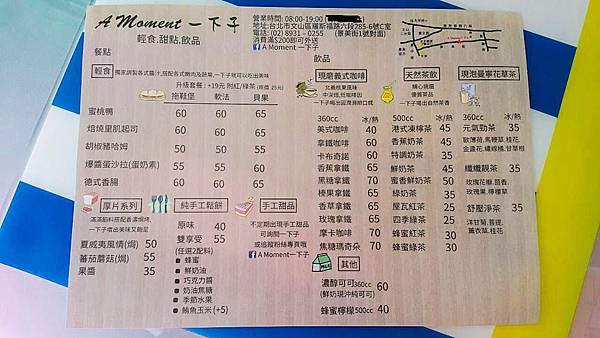 A Moment 一下子
輕食.甜點.飲品
營業時間: 08:00-19:00
地址:台北市文山區羅斯福路六段285-6號C室
電話: (02) 8931 – 0255 (景美街1號對面)
消費滿$200即可外送
A Moment 一下子
餐點
輕食
獨家調製各式醬汁,搭配各式嫩肉及蔬果,一下子就可以吃出美味
升級套餐: +19元 附紅/綠茶 (原價 25元)
拖鞋堡 軟法 貝果
蜜桃鴨 60 60 65
焙燒里肌起司 60 60 65
胡椒豬哈姆 50 50 55
爆醬蛋沙拉(蛋奶素) 55 55 60
德式香腸 60 60 65
厚片系列
滿滿餡料搭配香濃焗烤,
一下子嚐出美味又飽足
夏威夷風情(焗) 50
蕃茄蘑菇(焗) 55
果醬 35
純手工鬆餅
原味 40
雙享受 55
(任選2配料)
蜂蜜
鮮奶油
巧克力醬
奶油焦糖
季節水果
鮪魚玉米 (+5)
手工甜品
不定期出現手工甜品
可詢問一下子
或追蹤粉絲專頁哦
A Moment一下子
飲品
現磨義式咖啡
北義榛果風味
中深焙,低咖啡因
一下子喝出迴盪滑順口感
360cc 冰/熱
美式咖啡 40
拿鐵咖啡 60
卡布奇諾 60
香蕉拿鐵 65
黑糖拿鐵 65
榛果拿鐵 65
香草拿鐵 65
玫瑰拿鐵 65
摩卡咖啡 70
焦糖瑪奇朵 70
其他
濃醇可可360cc 60
(鮮奶現沖純可可)
蜂蜜檸檬500cc 40
天然茶飲
精心挑選
優質茶品
一下子喝出自然茶香
500cc 冰/熱
港式凍檸茶 45
香蕉奶茶 45
特調奶茶 35
鮮奶茶 50
蜜香鮮奶茶 50
綠奶茶 35
屋瓦紅茶 25
四季綠茶 25
蜂蜜紅茶 30
蜂蜜綠茶 30
現泡曼寧花草茶
360cc 冰/熱
元氣勁茶 35
歐薄荷,馬鞭草,桂花,
金盞花,繡線橘,甘草根
纖纖靓茶 35
玫瑰花瓣,茴香,
玫瑰果,檸檬草
舒壓淨茶 35
洋甘菊,菩提,
薰衣草,桂花